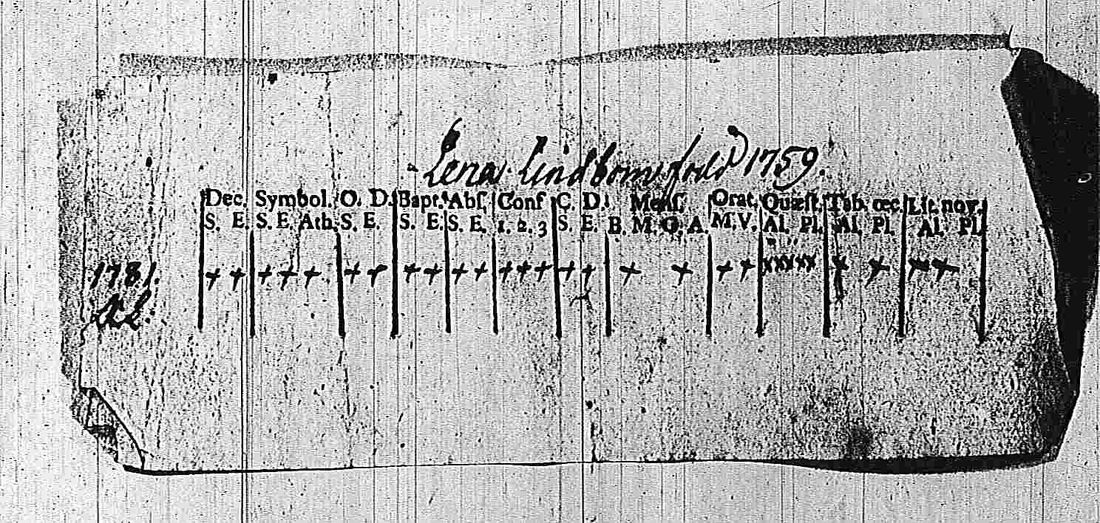 Lena Lindbom född 1759.
Dec. Symbol. O. D. Bapt. Abſ. Conf C. D. Menſ. Orat. Quæſt. Tab. œc. Lit. nov.
S. E. S. E. Ath. S. E. S. E. S. E. 1. 2. 3 S. E. B. M. G. A. M. V. Al. Pl. Al. Pl. Al. Pl.
1781. + + + + + + + + + + + + + + + + + + + + + x x x x x x x x x